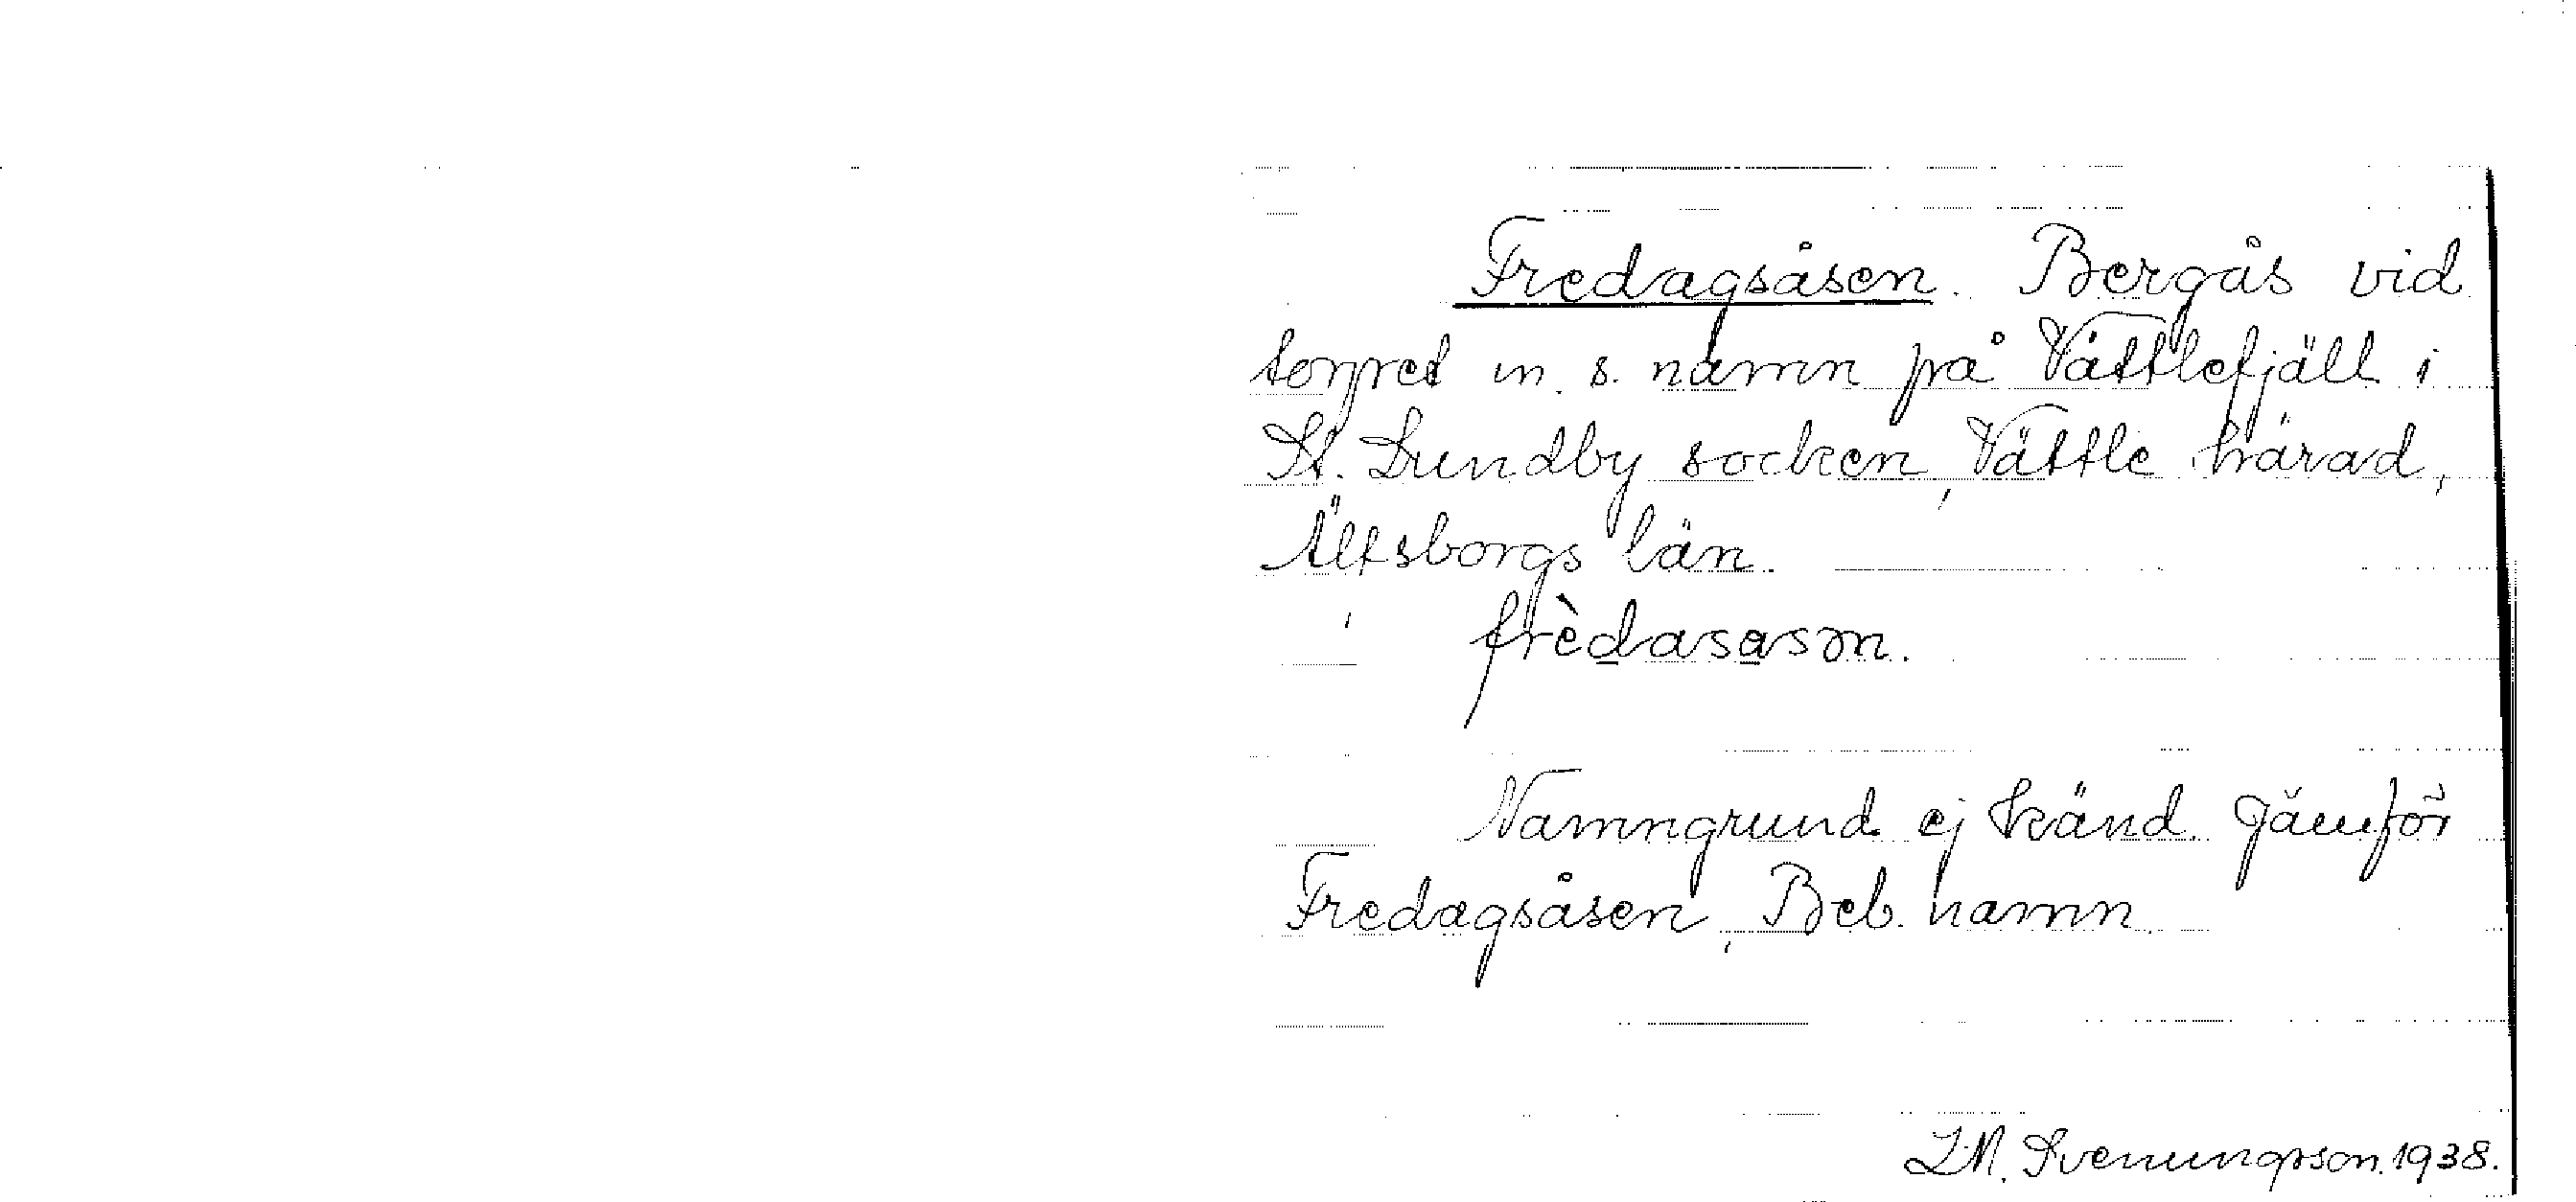 Fredagsåsen. Bergås vid
torpet m. s. namn på Vättlefjäll i
St. Lundby socken, Vättle härad,
Älfsborgs län.
frèdasasən.
Namngrund ej känd. Jämför
Fredagsåsen, Beb. namn.
I. M. Svenungsson. 1938.